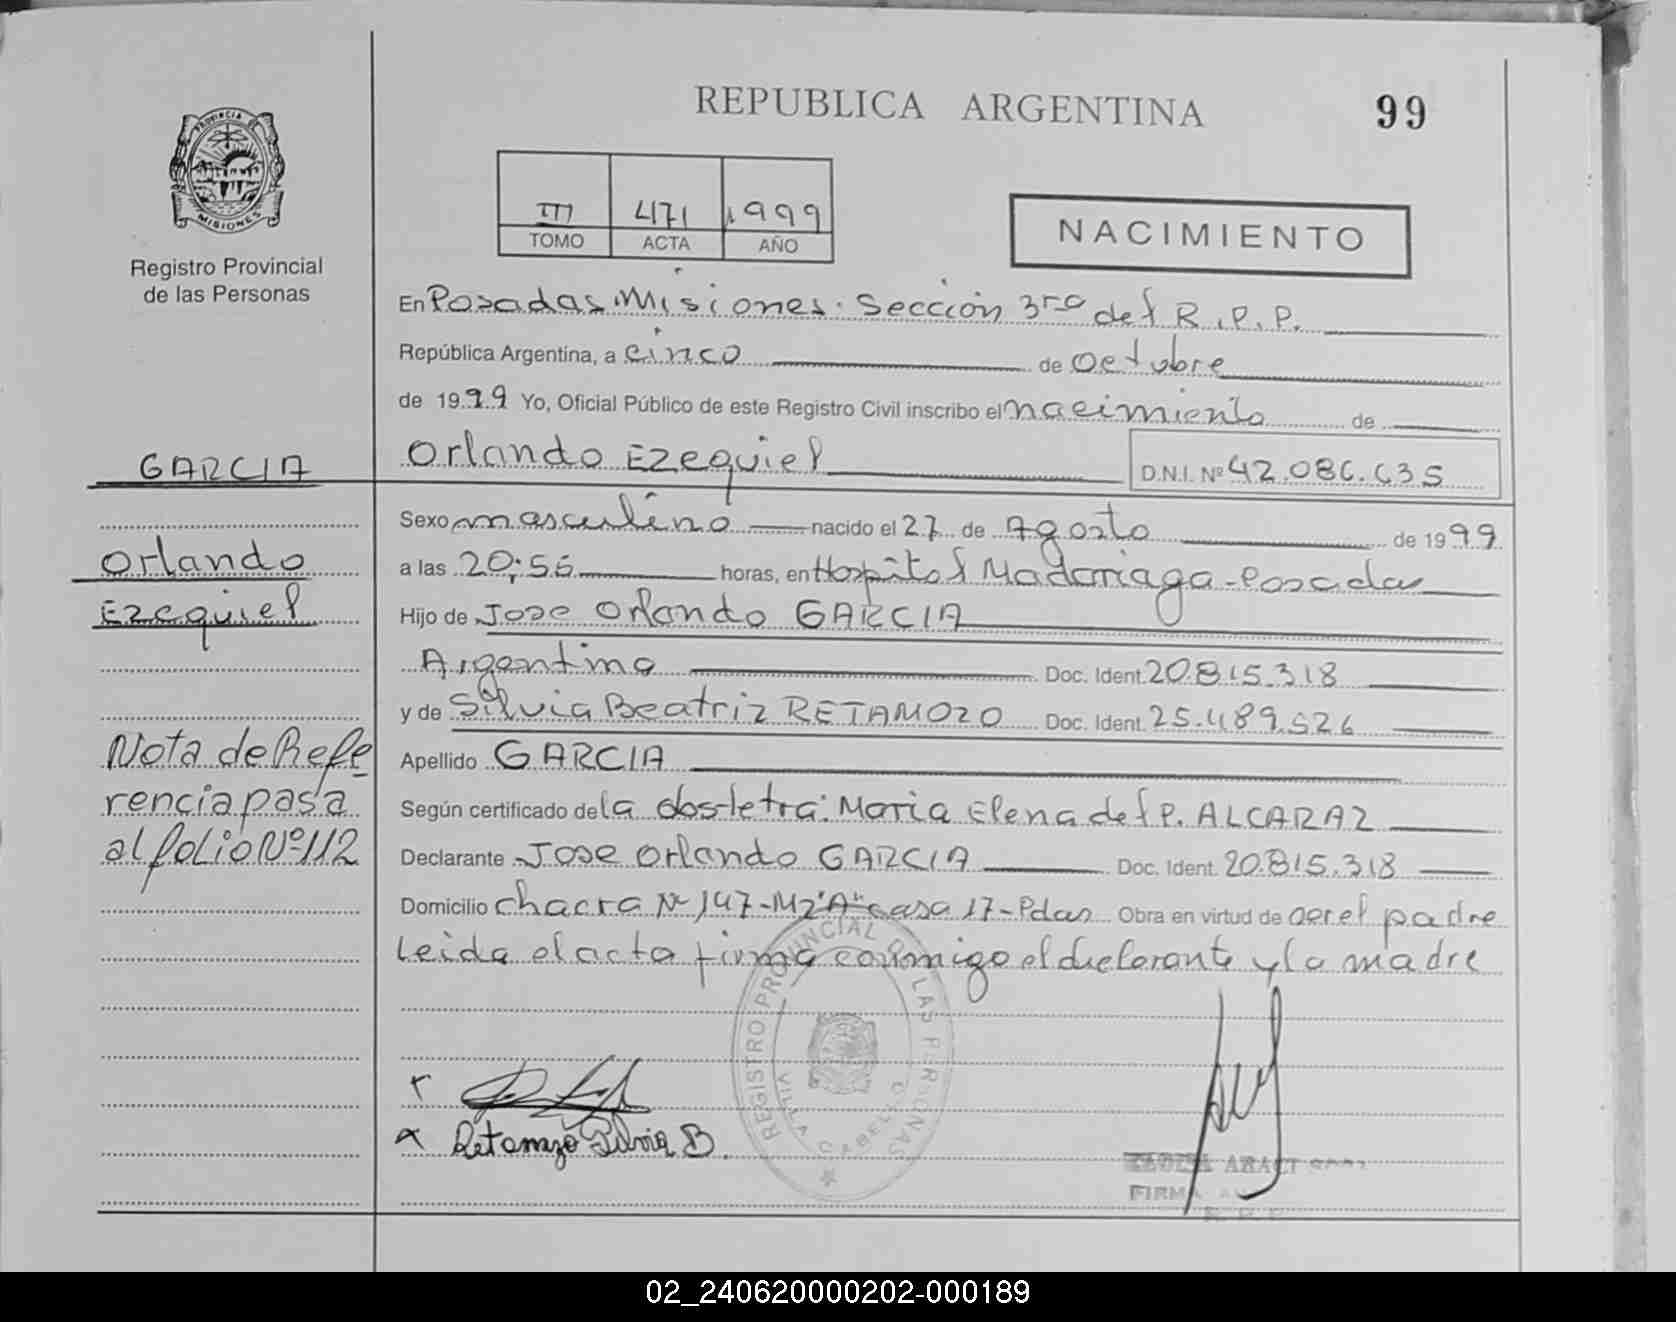 REPUBLICA ARGENTINA
99
PROVINCIA DE
MISIONES
Registro Provincial
de las Personas
III 471 1999
TOMO ACTA AÑO
NACIMIENTO
En Posadas Misiones. Sección 3ra del R.P.P.
República Argentina, a cinco de octubre
de 1999 Yo, Oficial Público de este Registro Civil inscribo el nacimiento de
GARCIA
Orlando Ezequiel D.N.I. Nº 42.086.635
Sexo masculino nacido el 27 de Agosto de 1999
Orlando
a las 20:56 horas, en Hospital Madariaga - Posadas
Ezequiel
Hijo de Jose Orlando GARCIA
Argentina Doc. Ident. 20.815.318
y de Silvia Beatriz RETAMOZO Doc. Ident. 25.489.526
Nota de Refe
rencia pasa
al folio Nº 112
Apellido GARCIA
Según certificado de la obstetra: Maria Elena del P. ALCARAZ
Declarante Jose Orlando GARCIA Doc. Ident. 20.815.318
Domicilio chacra Nº 147 - Mz "A" casa 17 - Pdas Obra en virtud de ser el padre
Leida el acta firma conmigo el declarante y la madre
REGISTRO PROVINCIAL DE LAS PERSONAS
VILLA CABELLO
Retamozo Silvia B.
FIRMA
02_240620000202-000189